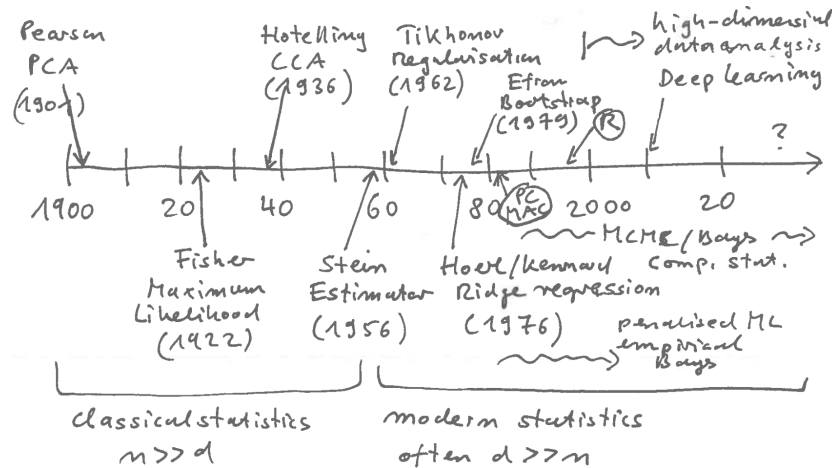 Pearson
PCA
(1901)
Hotelling
CCA
(1936)
Tikhonov
Regularisation
(1962)
Efron
Bootstrap
(1979)
R
high-dimensional
data analysis
Deep learning
?
1900 20 40 60 80 2000 20
PC
MAC
Fisher
Maximum
Likelihood
(1922)
Stein
Estimator
(1956)
Hoerl/Kennard
Ridge regression
(1976)
MCMC/Bays
Comp. stat.
penalised ML
empirical
Bays
classical statistics
n>>d
modern statistics
often d>>n